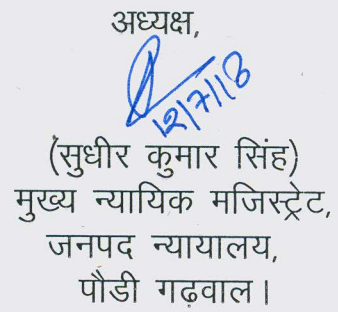 अध्यक्ष,
12/7/18
(सुधीर कुमार सिंह)
मुख्य न्यायिक मजिस्ट्रेट,
जनपद न्यायालय,
पौडी गढ़वाल।